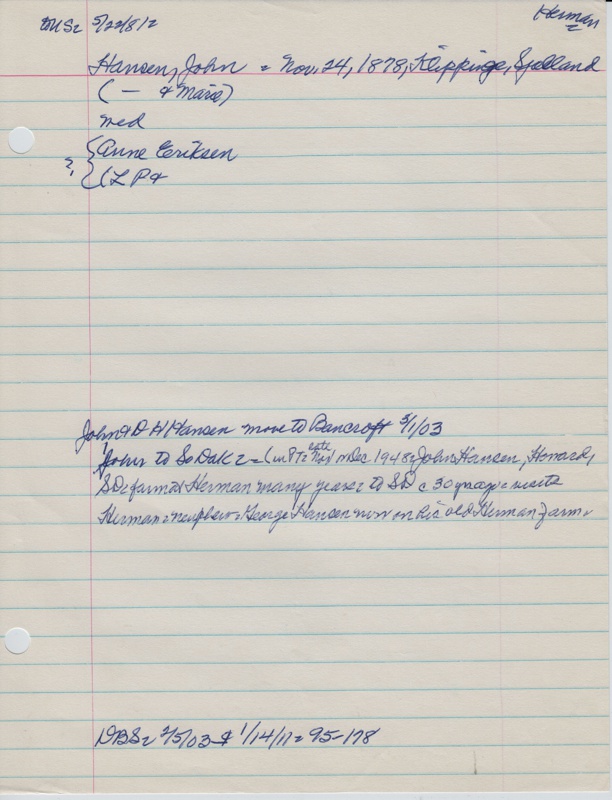 Herman
5/22/812
Hansen, John = Nov. 24, 1878, Klippinge, Sjelland
( — & Marie)
med
{ Anne Eriksen
?, { (L P &
John & D H Hansen move to Bancroft 5/1/03
John to So Dak = (in late Nov Dec 1948 = John Hansen, Howard,
SD = farmed Herman many years = to SD c 30 yrs ago = visits
Herman = nephew = George Hansen now on his old Herman farm =
DBS = 2/5/03 & 1/14/11 = 95-178